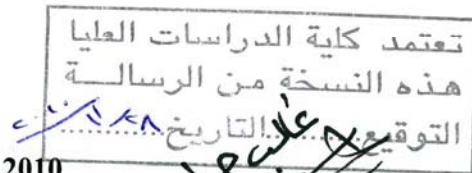 تعتمد كلية الدراسات العليا
هذه النسخة من الرسالـــة
التوقيع............التاريخ............
2010